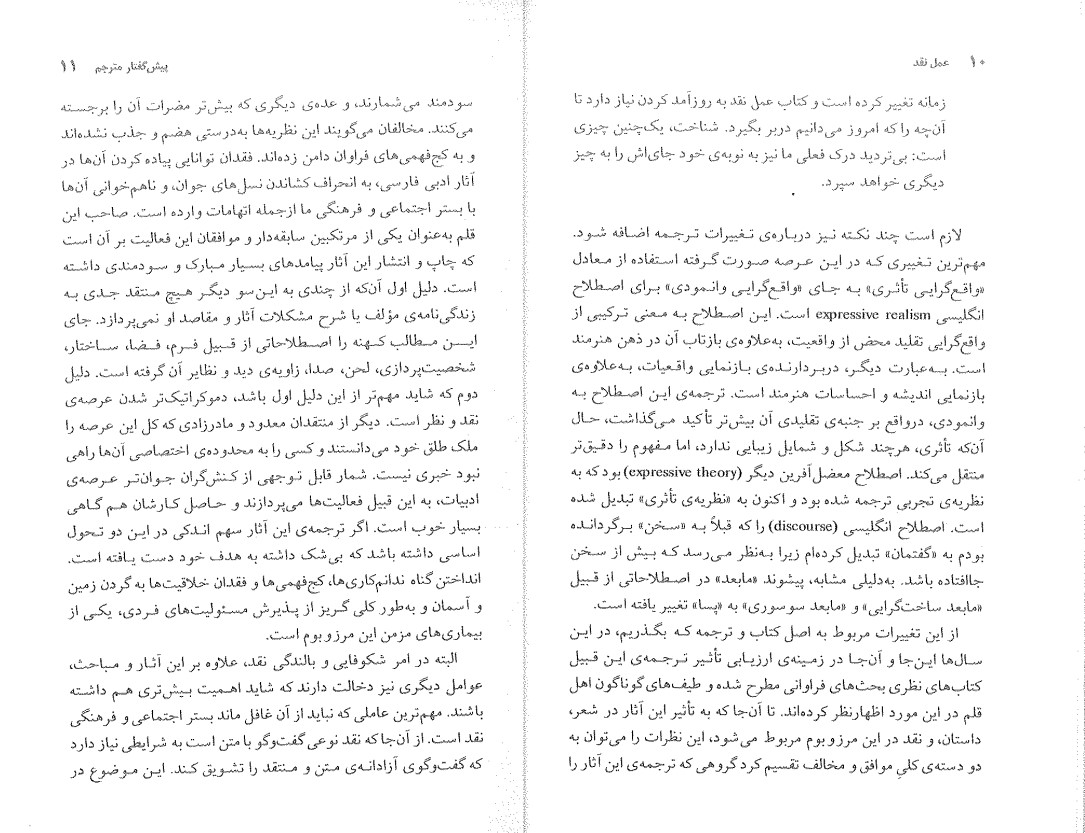 ۱۰ عمل نقد
زمانه تغییر کرده است و کتاب عمل نقد به روزآمد کردن نیاز دارد تا
آن‌چه را که امروز می‌دانیم دربر بگیرد. شناخت، یک‌چنین چیزی
است: بی‌تردید درک فعلی ما نیز به نوبه‌ی خود جای‌اش را به چیز
دیگری خواهد سپرد.
لازم است چند نکته نیز درباره‌ی تغییرات ترجمه اضافه شود.
مهم‌ترین تغییری که در این عرصه صورت گرفته استفاده از معادل
«واقع‌گرایی تأثری» به جای «واقع‌گرایی وانمودی» برای اصطلاح
انگلیسی expressive realism است. این اصطلاح به معنی ترکیبی از
واقع‌گرایی تقلید محض از واقعیت، به‌علاوه‌ی بازتاب آن در ذهن هنرمند
است. به‌عبارت دیگر، دربردارنده‌ی بازنمایی واقعیات، به‌علاوه‌ی
بازنمایی اندیشه و احساسات هنرمند است. ترجمه‌ی این اصطلاح به
وانمودی، درواقع بر جنبه‌ی تقلیدی آن بیش‌تر تأکید می‌گذاشت، حال
آن‌که تأثری، هرچند شکل و شمایل زیبایی ندارد، اما مفهوم را دقیق‌تر
منتقل می‌کند. اصطلاح معضل‌آفرین دیگر (expressive theory) بود که به
نظریه‌ی تجربی ترجمه شده بود و اکنون به «نظریه‌ی تأثری» تبدیل شده
است. اصطلاح انگلیسی (discourse) را که قبلاً به «سخن» برگردانده
بودم به «گفتمان» تبدیل کرده‌ام زیرا به‌نظر می‌رسد که بیش از سخن
جاافتاده باشد. به‌دلیلی مشابه، پیشوند «مابعد» در اصطلاحاتی از قبیل
«مابعد ساخت‌گرایی» و «مابعد سوسوری» به «پسا» تغییر یافته است.
از این تغییرات مربوط به اصل کتاب و ترجمه که بگذریم، در این
سال‌ها این‌جا و آن‌جا در زمینه‌ی ارزیابی تأثیر ترجمه‌ی این قبیل
کتاب‌های نظری بحث‌های فراوانی مطرح شده و طیف‌های گوناگون اهل
قلم در این مورد اظهارنظر کرده‌اند. تا آن‌جا که به تأثیر این آثار در شعر،
داستان، و نقد در این مرز و بوم مربوط می‌شود، این نظرات را می‌توان به
دو دسته‌ی کلی موافق و مخالف تقسیم کرد گروهی که ترجمه‌ی این آثار را
پیش‌گفتار مترجم ۱۱
سودمند می‌شمارند، و عده‌ی دیگری که بیش‌تر مضرات آن را برجسته
می‌کنند. مخالفان می‌گویند این نظریه‌ها به‌درستی هضم و جذب نشده‌اند
و به کج‌فهمی‌های فراوان دامن زده‌اند. فقدان توانایی پیاده کردن آن‌ها در
آثار ادبی فارسی، به انحراف کشاندن نسل‌های جوان، و ناهم‌خوانی آن‌ها
با بستر اجتماعی و فرهنگی ما ازجمله اتهامات وارده است. صاحب این
قلم به‌عنوان یکی از مرتکبین سابقه‌دار و موافقان این فعالیت بر آن است
که چاپ و انتشار این آثار پیامدهای بسیار مبارک و سودمندی داشته
است. دلیل اول آن‌که از چندی به این‌سو دیگر هیچ منتقد جدی به
زندگی‌نامه‌ی مؤلف یا شرح مشکلات آثار و مقاصد او نمی‌پردازد. جای
ایـن مطالب کهنه را اصطلاحاتی از قبیل فرم، فضا، ساختار،
شخصیت‌پردازی، لحن، صدا، زاویه‌ی دید و نظایر آن گرفته است. دلیل
دوم که شاید مهم‌تر از این دلیل اول باشد، دموکراتیک‌تر شدن عرصه‌ی
نقد و نظر است. دیگر از منتقدان معدود و مادرزادی که کل این عرصه را
ملک طلق خود می‌دانستند و کسی را به محدوده‌ی اختصاصی آن‌ها راهی
نبود خبری نیست. شمار قابل توجهی از کنش‌گران جوان‌تر عرصه‌ی
ادبیات، به این قبیل فعالیت‌ها می‌پردازند و حاصل کارشان هم گاهی
بسیار خوب است. اگر ترجمه‌ی این آثار سهم اندکی در این دو تحول
اساسی داشته باشد که بی‌شک داشته به هدف خود دست یافته است.
انداختن گناه ندانم‌کاری‌ها، کج‌فهمی‌ها و فقدان خلاقیت‌ها به گردن زمین
و آسمان و به‌طور کلی گریز از پذیرش مسئولیت‌های فردی، یکی از
بیماری‌های مزمن این مرز و بوم است.
البته در امر شکوفایی و بالندگی نقد، علاوه بر این آثار و مباحث،
عوامل دیگری نیز دخالت دارند که شاید اهمیت بیش‌تری هم داشته
باشند. مهم‌ترین عاملی که نباید از آن غافل ماند بستر اجتماعی و فرهنگی
نقد است. از آن‌جا که نقد نوعی گفت‌وگو با متن است به شرایطی نیاز دارد
که گفت‌وگوی آزادانه‌ی متن و منتقد را تشویق کند. این موضوع در